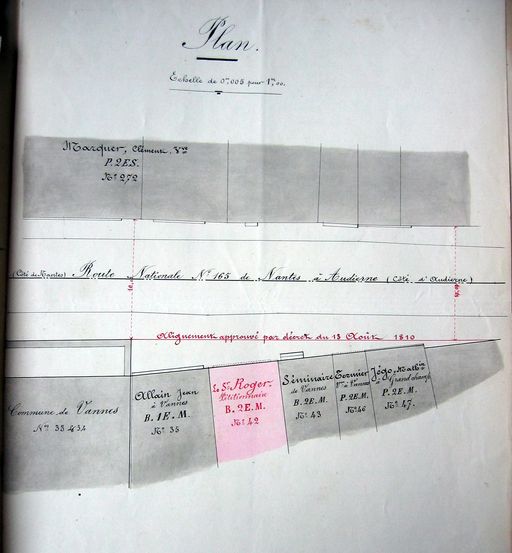 Plan.
Echelle de 0m.005 pour 1m.00.
Marquer, Clément, Vve
P. 2 E S.
No 272
(Côté de Nantes) Route Nationale No 165 de Nantes à Audierne (Côté d'Audierne)
Alignement approuvé par décret du 13 Août 1810
Commune de Vannes
Nos 33 & 34
Allain Jean
à Vannes
B. 1 E. M.
No 38
Le Sr Roger
Pétitionnaire
B. 2 E. M.
No 42
Séminaire
de Vannes
B. 2 E. M.
No 43
Tormier
Vve à Vannes
P. 2 E. M.
No 46
Jégo, Mathin
Grand champ
P. 2 E. M.
No 47.